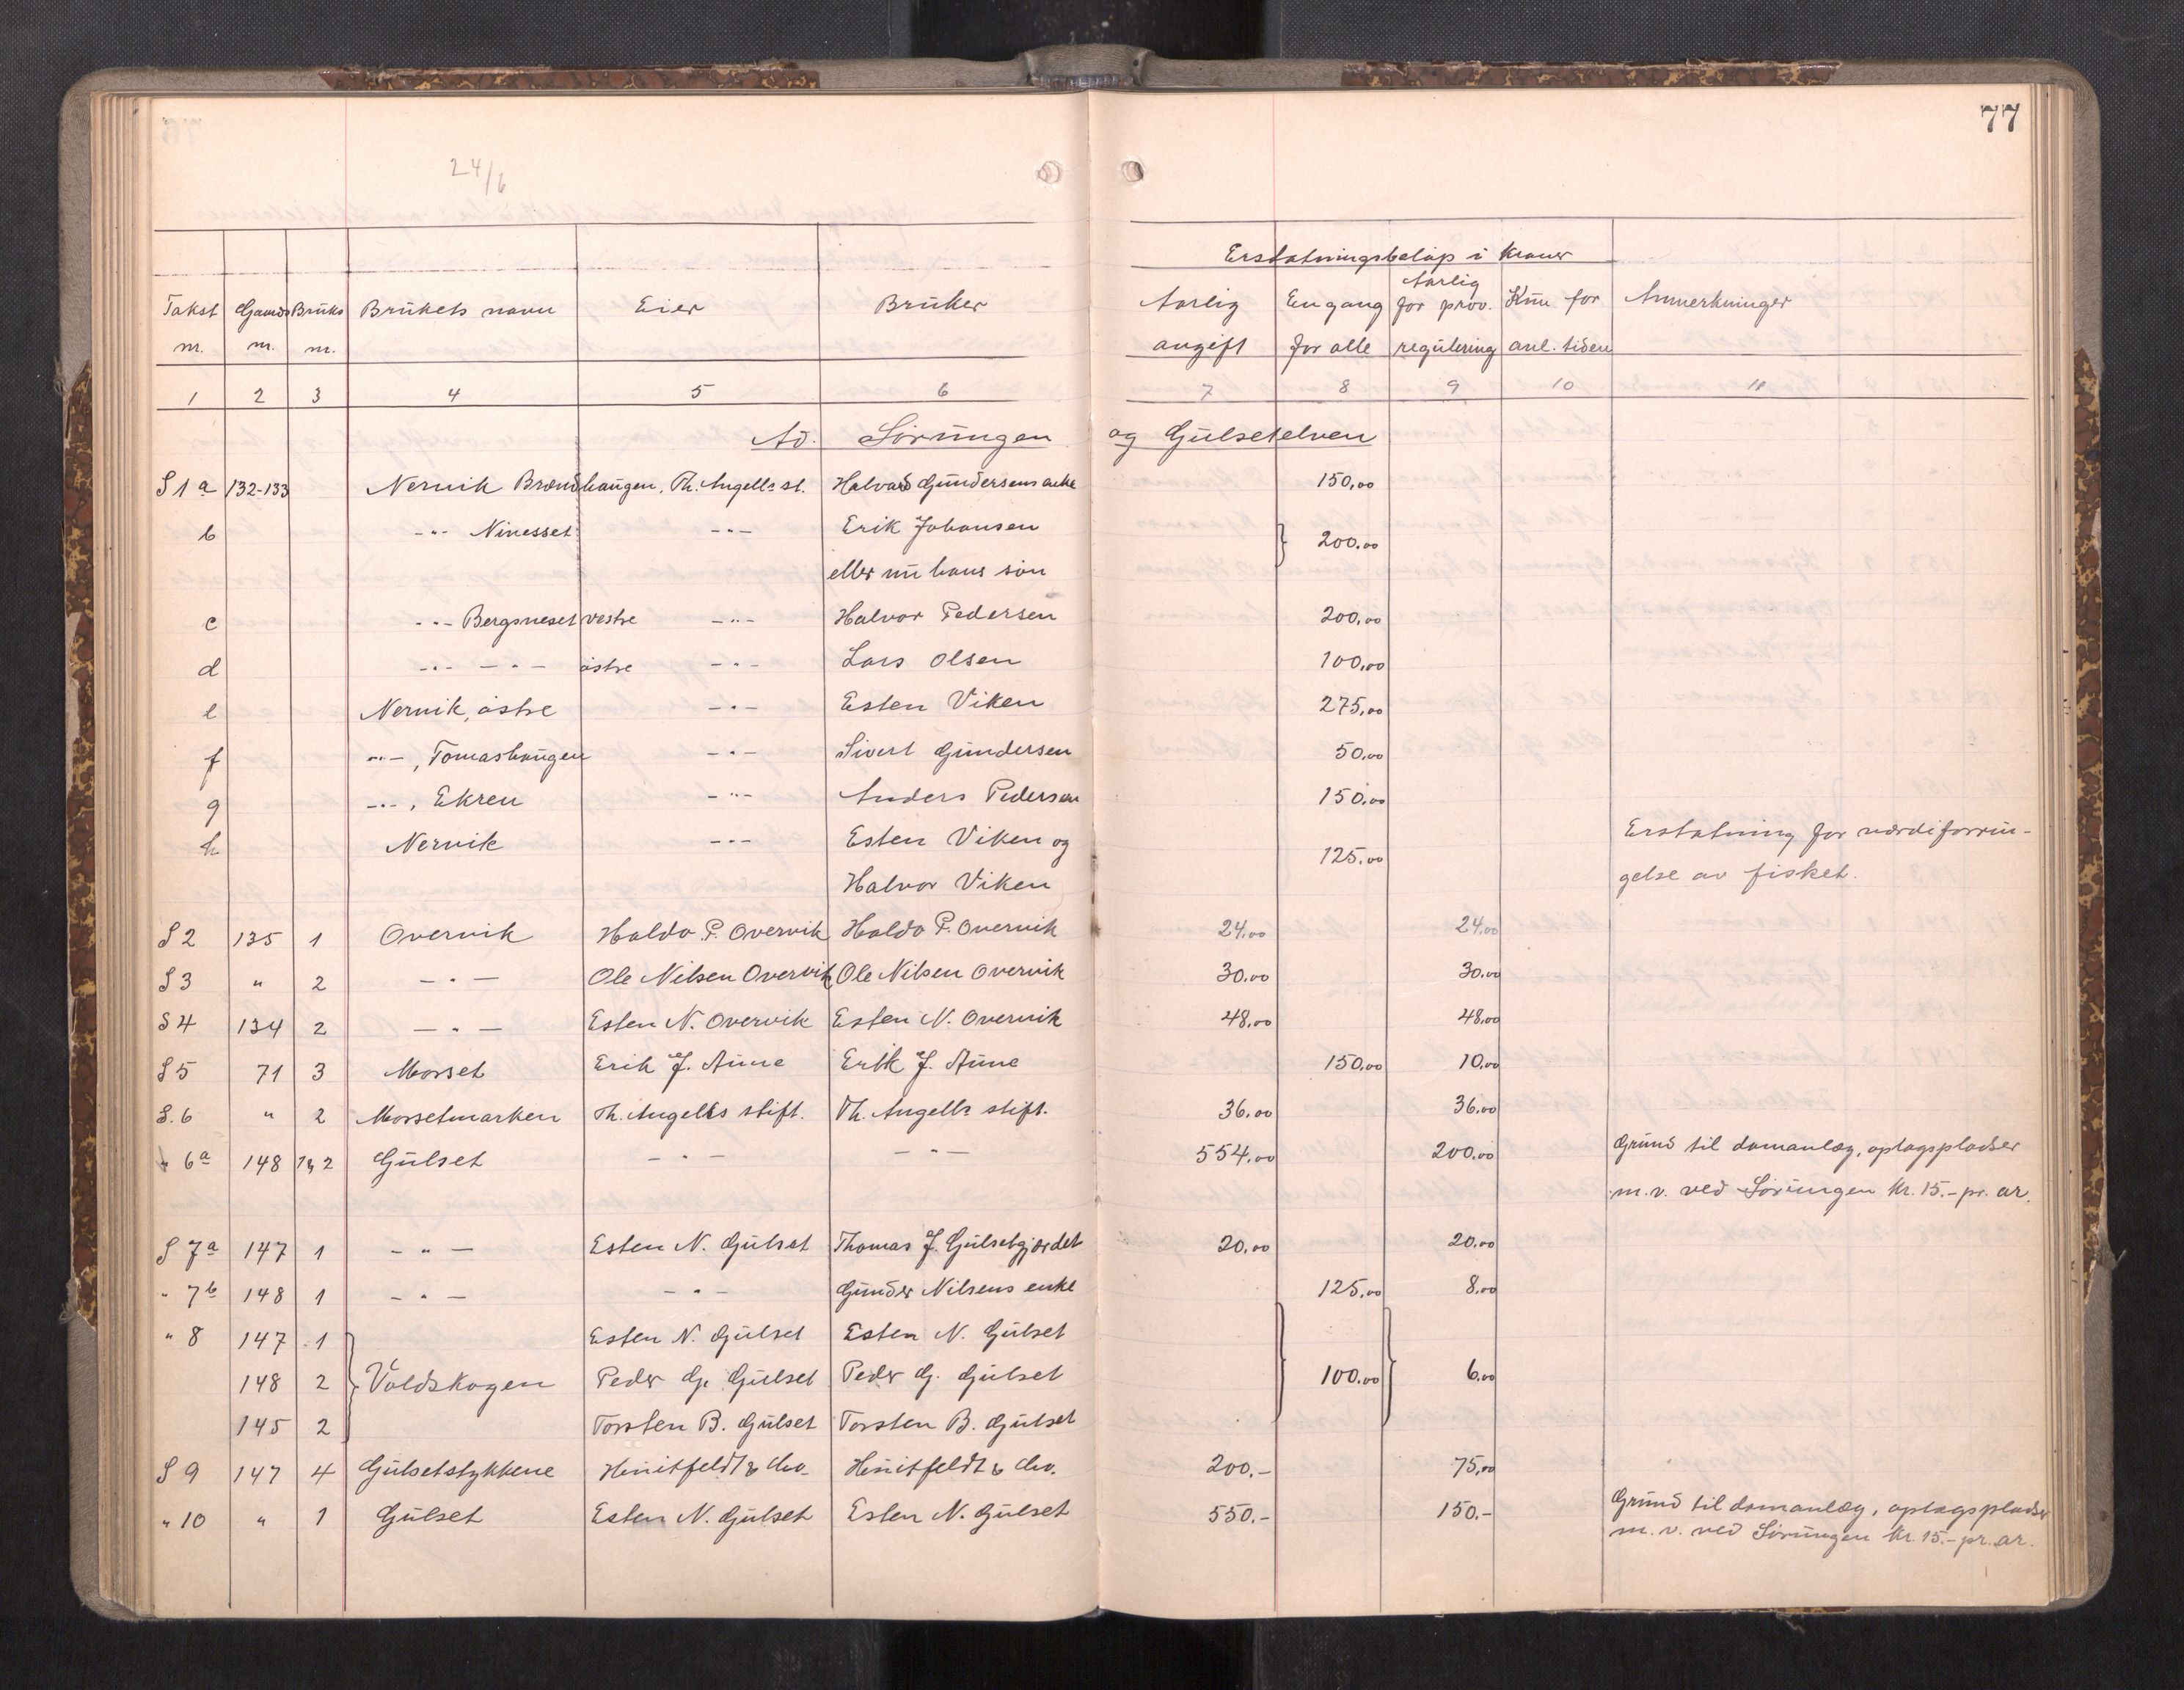 77
24/6
Erstatningsbeløp i kroner
Takst nr. Gaards nr. Bruks nr. Brukets navn Eier Bruker Aarlig avgift Engang for alle Aarlig for prov. regulering Kun for anl. tiden Anmerkninger
1 2 3 4 5 6 7 8 9 10 11
Ad. Sørungen og Gulsetelven
S 1 a 132-133 Nervik Brændhaugen, Th. Angells st. Halvard Gundersens enke 150,00
b -"- Ninesset -"- Erik Johansen 200,00
eller nu hans søn
c -"- Bergsneset vestre -"- Halvor Pedersen 200,00
d -"- -"- østre -"- Lars Olsen 100,00
e Nervik, østre -"- Esten Viken 275,00
f -"-, Tomashaugen -"- Sivert Gundersen 50,00
g -"-, Ekren -"- Anders Pedersen 150,00
h Nervik -"- Esten Viken og 125,00 Erstatning for værdiforrin-
Halvor Viken gelse av fisket.
S 2 135 1 Overvik Haldo P. Overvik Haldo P. Overvik 24,00 24,00
S 3 " 2 -"- Ole Nilsen Overvik Ole Nilsen Overvik 30,00 30,00
S 4 134 2 -"- Esten N. Overvik Esten N. Overvik 48,00 48,00
S 5 71 3 Morset Erik J. Aune Erik J. Aune 150,00 10,00
S. 6 " 2 Morsetmarken Th. Angells stift. Th. Angells stift. 36,00 36,00
" 6a 148 1 & 2 Gulset -"- -"- 554,00 200,00 Grund til damanlæg, oplagspladser
m.v. ved Sørungen kr. 15.- pr. ar.
S 7a 147 1 -"- Esten N. Gulset Thomas J. Gulsetgjærdet 20,00 20,00
" 7b 148 1 -"- -"- Gunder Nilsens enke 125,00 8,00
" 8 147 1 Esten N. Gulset Esten N. Gulset
148 2 Voldskogen Peder G. Gulset Peder G. Gulset 100,00 6,00
145 2 Torsten B. Gulset Torsten B. Gulset
S 9 147 4 Gulsetstykkene Huitfeldt & Co. Huitfeldt & Co. 200.- 75,00
" 10 " 1 Gulset Esten N. Gulset Esten N. Gulset 550.- 150.- Grund til damanlæg, oplagspladser
m.v. ved Sørungen kr. 15.- pr. ar.